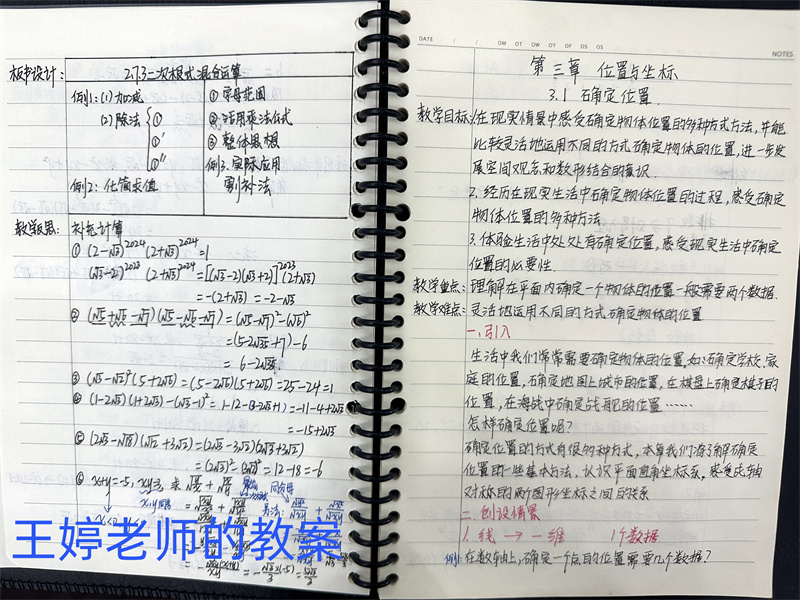 板书设计:
2.7.3二次根式混合运算
例1:(1)加减
(2)除法
①
①'
①"
例2:化简求值
①字母范围
②活用乘法公式
③整体思想
例3:实际应用
割补法
教学反思: 补充计算
① (2-√3)²⁰²⁴ (2+√3)²⁰²⁴=1
(√3-2)²⁰²³ (2+√3)²⁰²⁴=[(√3-2)(√3+2)]²⁰²³(2+√3)
=-(2+√3)=-2-√3
② (√5+√6-√7)(√5-√6-√7)=(√5-√7)²-(√6)²
=(5-2√35+7)-6
=6-2√35
③ (√3-√2)²(5+2√6)=(5-2√6)(5+2√6)=25-24=1
④ (1-2√3)(1+2√3)-(√3-1)²=1-12-(3-2√3+1)=-11-4+2√3
=-15+2√3
⑤ (2√3-√18)(√12+3√2)=(2√3-3√2)(2√3+3√2)
=(2√3)²-(3√2)²=12-18=-6
⑥ x+y=-5, xy=3, 求
王婷老师的教案
DATE / /
NOTES
第三章 位置与坐标
3.1 确定位置
教学目标:1.在现实情景中感受确定物体位置的多种方式方法,并能
比较灵活地运用不同的方式确定物体的位置,进一步发
展空间观念和数形结合的意识.
2.经历在现实生活中确定物体位置的过程,感受确定
物体位置的多种方法
3.体验生活中处处有确定位置,感受现实生活中确定
位置的必要性.
教学重点:理解在平面内确定一个物体的位置一般需要两个数据.
教学难点:灵活地运用不同的方式确定物体的位置
一.引入
生活中我们常常需要确定物体的位置,如:确定学校、家
庭的位置,确定地图上城市的位置,在棋盘上确定棋子的
位置,在海战中确定战舰的位置……
怎样确定位置呢?
确定位置的方式有很多种方式,本章我们将了解确定
位置的一些基本方法,认识平面直角坐标系,感受成轴
对称的两个图形坐标之间的关系
二.创设情景
1.线→一维 1个数据
例:在数轴上,确定一个点的位置需要几个数据?